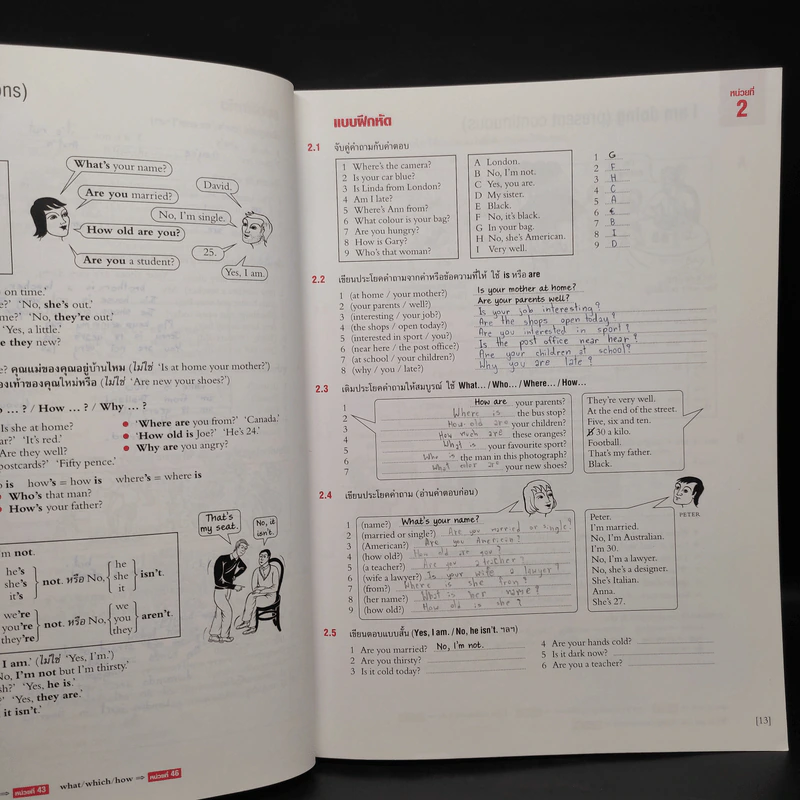 ons)
What's your name?
Are you married?
David.
No, I'm single.
How old are you?
25.
Are you a student?
Yes, I am.
on time.'
e?' 'No, she's out.'
me?' 'No, they're out.'
'Yes, a little.'
e they new?
? คุณแม่ของคุณอยู่บ้านไหม (ไม่ใช่ 'Is at home your mother?')
องเท้าของคุณใหม่หรือ (ไม่ใช่ 'Are new your shoes?')
o … ? / How … ? / Why … ?
Is she at home?
'Where are you from?' 'Canada.'
ar?' 'It's red.'
'How old is Joe?' 'He's 24.'
Are they well?
Why are you angry?
postcards?' 'Fifty pence.'
o is how's = how is where's = where is
Who's that man?
How's your father?
That's my seat.
No, it isn't.
'm not.
he's
she's
it's
not. หรือ No,
he
she
it
isn't.
we're
you're
they're
not. หรือ No,
we
you
they
aren't.
I am.' (ไม่ใช่ 'Yes, I'm.')
No, I'm not but I'm thirsty.'
sh?' 'Yes, he is.'
?' 'Yes, they are.'
it isn't.'
⇒ หน่วยที่ 43 what/which/how ⇒ หน่วยที่ 46
หน่วยที่
2
แบบฝึกหัด
2.1 จับคู่คำถามกับคำตอบ
1 Where's the camera?
2 Is your car blue?
3 Is Linda from London?
4 Am I late?
5 Where's Ann from?
6 What colour is your bag?
7 Are you hungry?
8 How is Gary?
9 Who's that woman?
A London.
B No, I'm not.
C Yes, you are.
D My sister.
E Black.
F No, it's black.
G In your bag.
H No, she's American.
I Very well.
1 G
2 F
3 H
4 C
5 A
6 E
7 B
8 I
9 D
2.2 เขียนประโยคคำถามจากคำหรือข้อความที่ให้ ใช้ is หรือ are
1 (at home / your mother?) Is your mother at home?
2 (your parents / well?) Are your parents well?
3 (interesting / your job?) Is your job interesting?
4 (the shops / open today?) Are the shops open today?
5 (interested in sport / you?) Are you interested in sport?
6 (near here / the post office?) Is the post office near hear?
7 (at school / your children?) Are your children at school?
8 (why / you / late?) Why you are late?
2.3 เติมประโยคคำถามให้สมบูรณ์ ใช้ What… / Who… / Where… / How…
1 How are your parents?
2 Where is the bus stop?
3 How old are your children?
4 How much are these oranges?
5 What is your favourite sport?
6 Who is the man in this photograph?
7 What color are your new shoes?
They're very well.
At the end of the street.
Five, six and ten.
30 a kilo.
Football.
That's my father.
Black.
2.4 เขียนประโยคคำถาม (อ่านคำตอบก่อน)
1 (name?) What's your name?
2 (married or single?) Are you married or single?
3 (American?) Are you American?
4 (how old?) How old are you?
5 (a teacher?) Are you a teacher?
6 (wife a lawyer?) Is your wife a lawyer?
7 (from?) Where is she from?
8 (her name?) What is her name?
9 (how old?) How old is she?
Peter.
I'm married.
No, I'm Australian.
I'm 30.
No, I'm a lawyer.
No, she's a designer.
She's Italian.
Anna.
She's 27.
PETER
2.5 เขียนตอบแบบสั้น (Yes, I am. / No, he isn't. ฯลฯ)
1 Are you married? No, I'm not.
2 Are you thirsty?
3 Is it cold today?
4 Are your hands cold?
5 Is it dark now?
6 Are you a teacher?
[13]